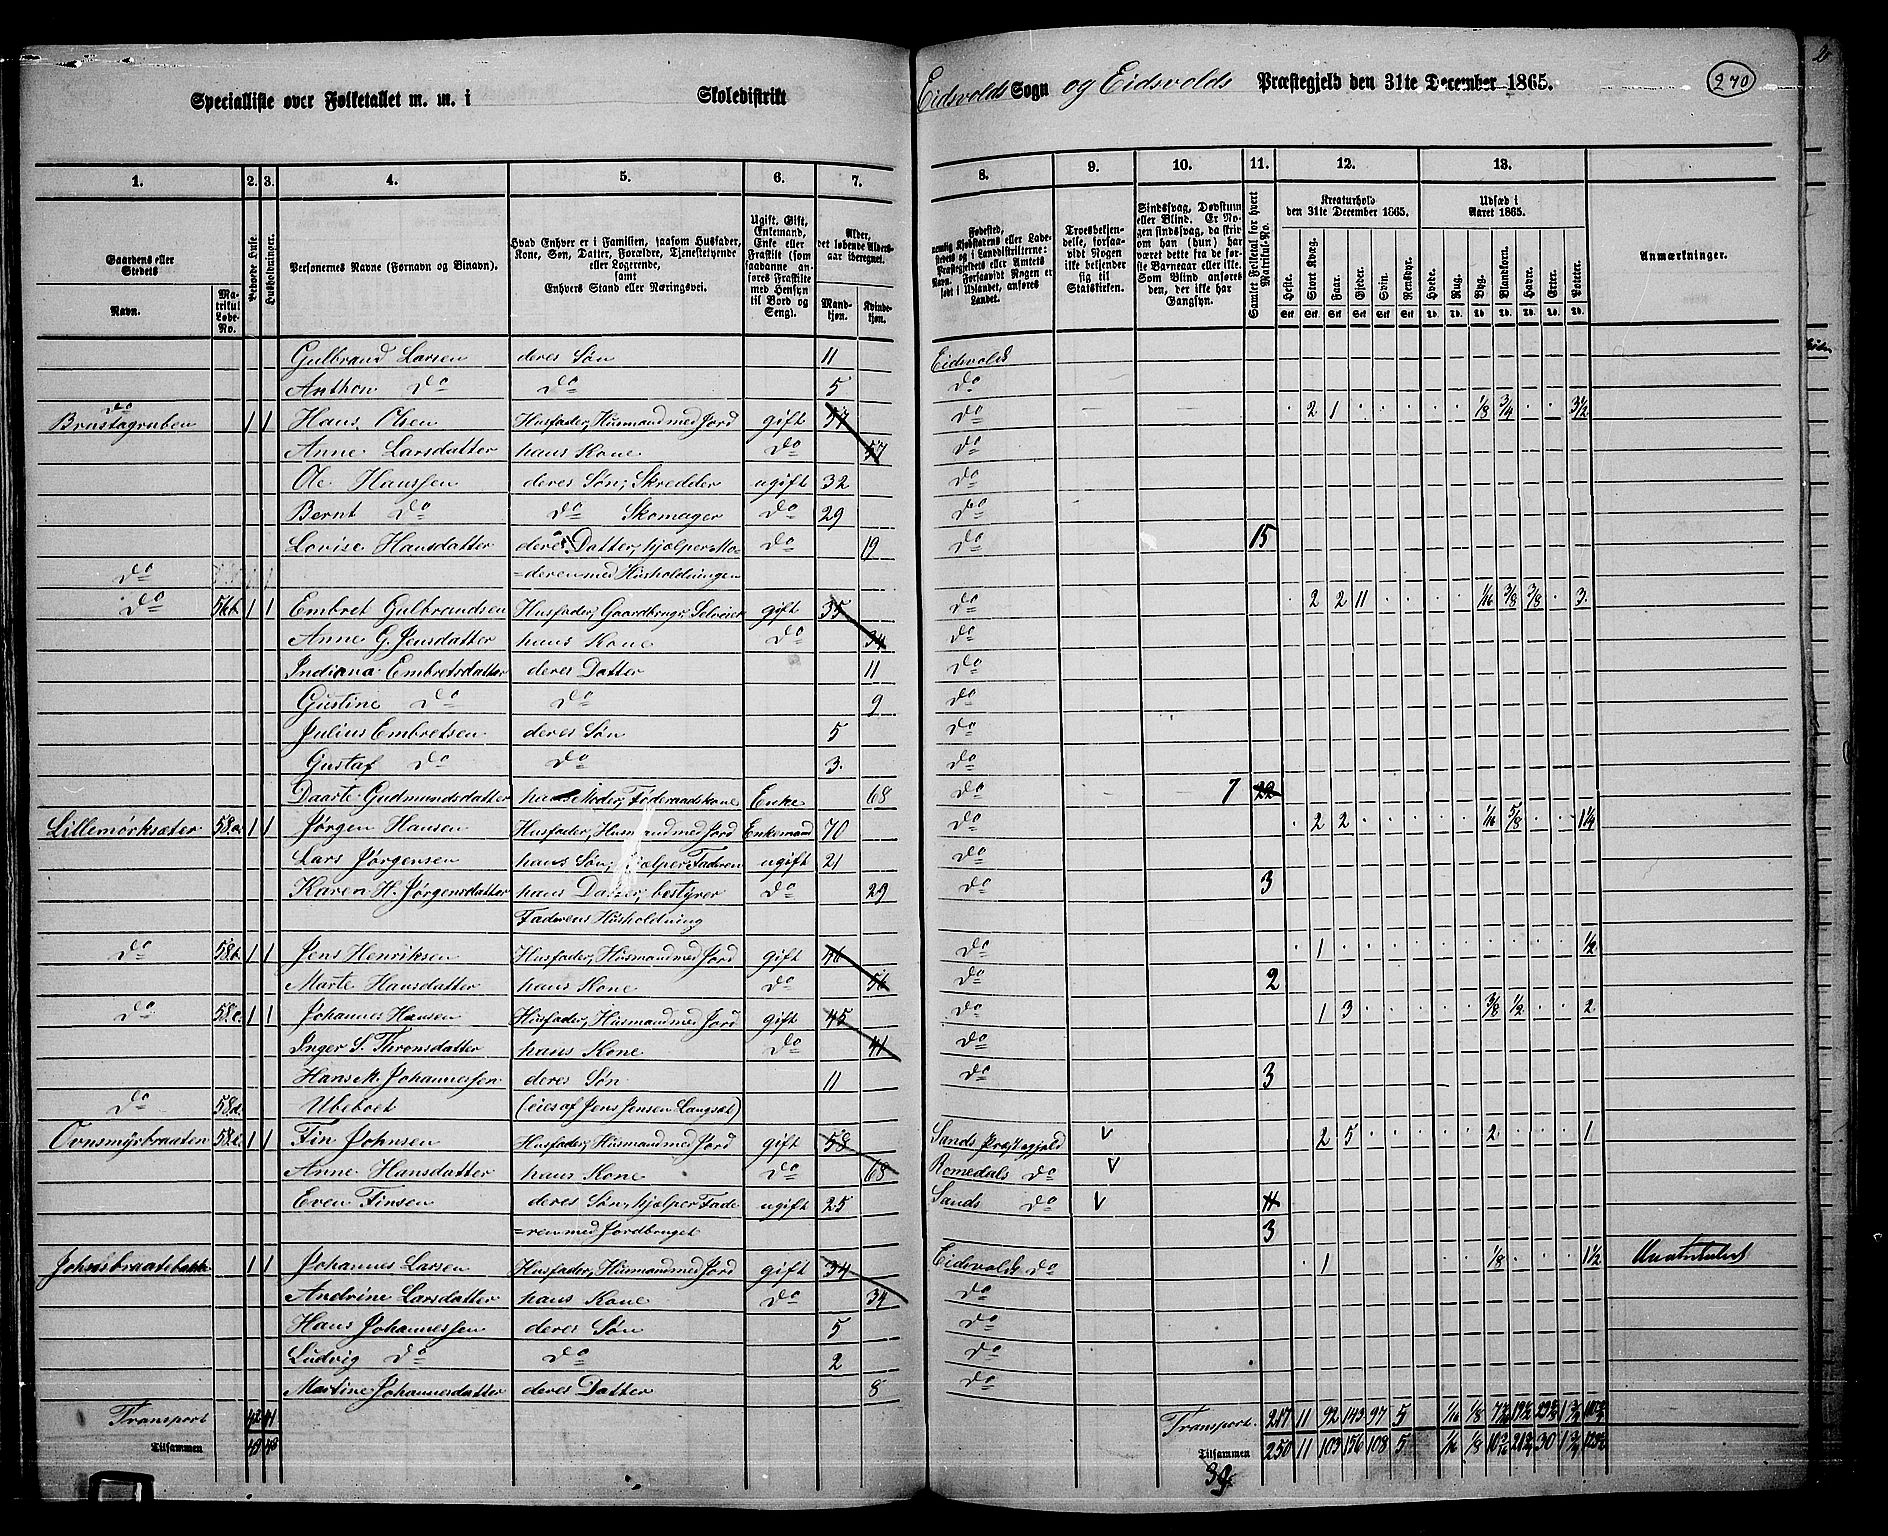 Specialliste over Folketallet m. m. i Skoledistrikt Eidsvolds Sogn og Eidsvolds Præstegjeld den 31te December 1865. 270
1. 2. 3. 4. 5. 6. 7. 8. 9. 10. 11. 12. 13.
Gaardens eller Stedets
Navn.
Matrikul Løbe-No.
Beboede Huse.
Husholdninger.
Personernes Navne (Fornavn og Tilnavn).
Hvad Enhver er i Familien, saasom Husfader, Kone, Søn, Datter, Forældre, Tjenestetyende eller Logerende,
samt
Enhvers Stand eller Næringsvei.
Ugift, Gift, Enkemand, Enke eller Fraskilt (som saadanne anføres Fraskilte med Hensyn til Bord og Seng).
Alder, det løbende Aldersaar iberegnet.
Mandkjøn.
Kvindekjøn.
Fødested,
Troesbekjendelse, forsaavidt Nogen ikke bekjender sig til Statskirken.
Sindssvag, Døvstum eller Blind. Er Nogen sindssvag, da skrives om han (hun) har været dette fra de første Barneaar eller ikke. Som Blind anføres den, der ikke har Gangsyn.
Samlet Folketal for hvert Matrikul-No.
Kreaturhold
den 31te December 1865.
Heste. Stort Kvæg. Faar. Gjeder. Svin. Rensdyr.
Udsæd i
Aaret 1865.
Hvede. Rug. Byg. Blandkorn. Havre. Erter. Poteter.
Anmærkninger.
Gulbrand Larsen deres Søn 11 Eidsvolds
Anthon Do Do 5 Do
Do
Brustagruben 1 1 Hans Olsen Husfader, Husmand med Jord gift 57 Do 2 1 1/8 3/4 3 1/2
Anne Larsdatter hans Kone Do 57 Do
Ole Hanssen deres Søn, Skredder ugift 32 Do
Bernt Do Do Skomager Do 29 Do
Lovise Hansdatter deres Datter, hjelper Mo= Do 19 Do 15
Do =deren med Husholdningen
Do 56.b 1 1 Embret Gulbrandsen Husfader, Gaardbrug, Selveier gift 35 Do 2 2 11 1/16 3/8 3/8 3
Anne G. Jensdatter hans Kone Do 34 Do
Indiana Embretsdatter deres Datter 11 Do
Gustine Do Do 9 Do
Julius Embretsen deres Søn 5 Do
Gustaf Do Do 3 Do
Daarte Gudmundsdatter hans Moder, Føderaadskone Enke 68 Do 7 22
Lillemørksæter 58.a 1 1 Jørgen Hansen Husfader, Husmand med Jord Enkemand 70 Do 2 2 1/16 5/8 1 1/4
Lars Jørgensen hans Søn, hjælper Faderen ugift 21 Do
Karen H. Jørgensdatter hans Datter, bestyrer Do 29 Do 3
Faderens Husholdning
Do 58.b 1 1 Jens Henriksen Husfader, Husmand med Jord gift 46 Do 1 1/2
Marte Hansdatter hans Kone Do 56 Do 2
Do 58.c 1 1 Johannes Hansen Husfader, Husmand med Jord gift 45 Do 1 3 3/8 1/2 2
Inger S. Thronsdatter hans Kone Do 41 Do
Hans M. Johannessen deres Søn 11 Do 3
Do 58.d Ubeboet (eies af Jens Jensen Langset)
Ovnsmyrbraaten 58.e 1 1 Fin Johnsen Husfader, Husmand med Jord gift 58 Sands Præstegjeld V 2 5 2 1
Anne Hansdatter hans Kone Do 68 Romedals Do V
Even Finsen deres Søn, hjelper Fade ugift 25 Sands Do V 11
=ren med Jordbruget 3
1 1 Johannes Larsen Husfader, Husmand med Jord gift 34 Eidsvolds Do 1 1/8 1 1/2 Umatriculeret
Andrine Larsdatter hans Kone Do 34 Do
Hans Johannessen deres Søn 5 Do
Ludvig Do Do 2 Do
Martine Johannesdatter deres Datter 8 Do
Transport 42 41 Transport. 217 11 92 143 97 5 1/16 1/8
Tilsammen 49 48 Tilsammen 250 11 103 156 108 5 1/16 1/8 30
39